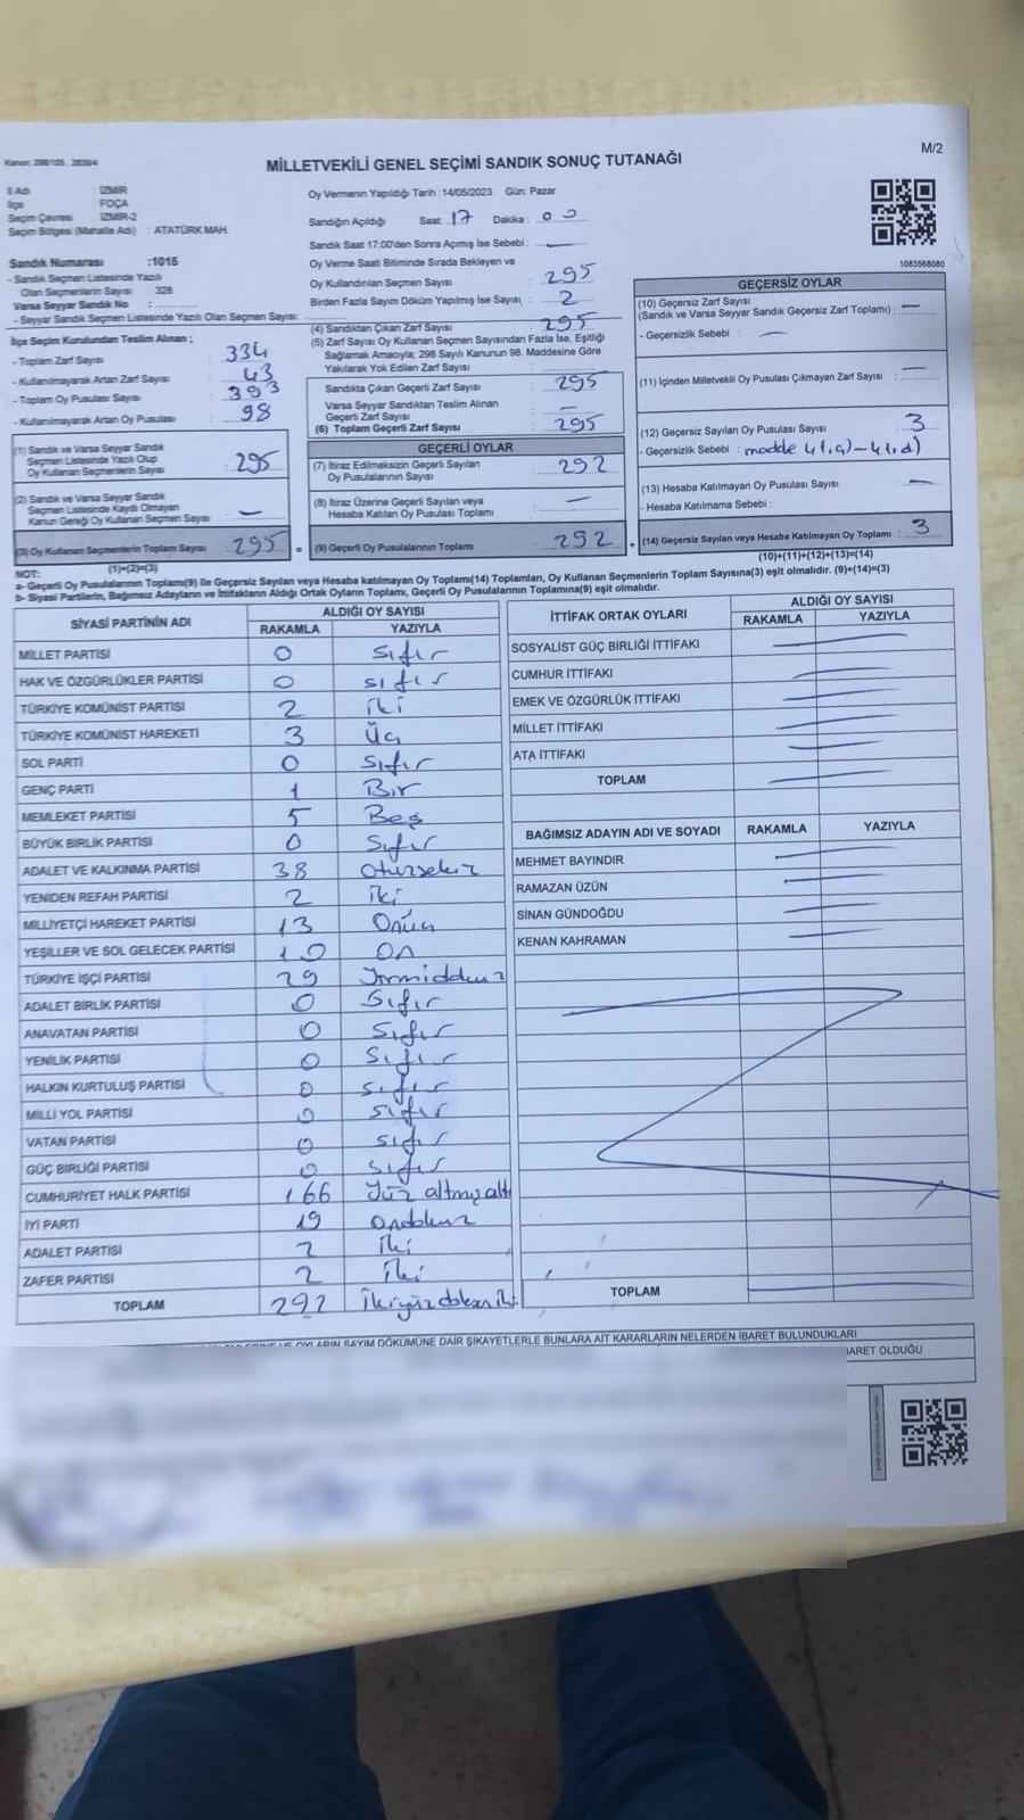 MİLLETVEKİLİ GENEL SEÇİMİ SANDIK SONUÇ TUTANAĞI
M/2
İl Adı : İZMİR
İlçe : FOÇA
Seçim Çevresi : İZMİR-2
Seçim Bölgesi (Mahalle Adı) : ATATÜRK MAH.
Oy Vermenin Yapıldığı Tarih :14/05/2023 Gün: Pazar
Sandığın Açıldığı Saat: 17 Dakika : 00
Sandık Saat 17:00'den Sonra Açımış İse Sebebi : —
Sandık Numarası :1015
- Sandık Seçmen Listesinde Yazılı
Olan Seçmenlerin Sayısı : 328
Varsa Seyyar Sandık No :
- Seyyar Sandık Seçmen Listesinde Yazılı Olan Seçmen Sayısı:
İlçe Seçim Kurulundan Teslim Alınan ;
- Toplam Zarf Sayısı 334
- Kullanılmayarak Artan Zarf Sayısı 43
- Toplam Oy Pusulası Sayısı 393
- Kullanılmayarak Artan Oy Pusulası 98
(1) Sandık ve Varsa Seyyar Sandık
Seçmen Listesinde Yazılı Olup
Oy Kullanan Seçmenlerin Sayısı 295
(2) Sandık ve Varsa Seyyar Sandık
Seçmen Listesinde Kaydı Olmayan
Kanun Gereği Oy Kullanan Seçmen Sayısı —
(3) Oy Kullanan Seçmenlerin Toplam Sayısı 295
(1)+(2)=(3)
Oy Verme Saati Bitiminde Sırada Bekleyen ve
Oy Kullandırılan Seçmen Sayısı : 295
Birden Fazla Sayım Döküm Yapılmış İse Sayısı : 2
(4) Sandıktan Çıkan Zarf Sayısı 295
(5) Zarf Sayısı Oy Kullanan Seçmen Sayısından Fazla İse, Eşitliği
Sağlamak Amacıyla; 298 Sayılı Kanunun 98. Maddesine Göre
Yakılarak Yok Edilen Zarf Sayısı :
Sandıkta Çıkan Geçerli Zarf Sayısı : 295
Varsa Seyyar Sandıktan Teslim Alınan
Geçerli Zarf Sayısı : —
(6) Toplam Geçerli Zarf Sayısı : 295
GEÇERLİ OYLAR
(7) İtiraz Edilmeksizin Geçerli Sayılan
Oy Pusulalarının Sayısı : 292
(8) İtiraz Üzerine Geçerli Sayılan veya
Hesaba Katılan Oy Pusulası Toplamı : —
= (9) Geçerli Oy Pusulalarının Toplamı : 292
1083568080
GEÇERSİZ OYLAR
(10) Geçersiz Zarf Sayısı : —
(Sandık ve Varsa Seyyar Sandık Geçersiz Zarf Toplamı)
- Geçersizlik Sebebi : —
(11) İçinden Milletvekili Oy Pusulası Çıkmayan Zarf Sayısı : —
(12) Geçersiz Sayılan Oy Pusulası Sayısı : 3
- Geçersizlik Sebebi : madde
(13) Hesaba Katılmayan Oy Pusulası Sayısı : —
- Hesaba Katılmama Sebebi :
+ (14) Geçersiz Sayılan veya Hesaba Katılmayan Oy Toplamı : 3
(10)+(11)+(12)+(13)=(14)
NOT:
a- Geçerli Oy Pusulalarının Toplamı(9) ile Geçersiz Sayılan veya Hesaba katılmayan Oy Toplamı(14) Toplamları, Oy Kullanan Seçmenlerin Toplam Sayısına(3) eşit olmalıdır. (9)+(14)=(3)
b- Siyasi Partilerin, Bağımsız Adayların ve İttifakların Aldığı Ortak Oyların Toplamı, Geçerli Oy Pusulalarının Toplamına(9) eşit olmalıdır.
SİYASİ PARTİNİN ADI ALDIĞI OY SAYISI
RAKAMLA YAZIYLA
MİLLET PARTİSİ 0 Sıfır
HAK VE ÖZGÜRLÜKLER PARTİSİ 0 sıfır
TÜRKİYE KOMÜNİST PARTİSİ 2 iki
TÜRKİYE KOMÜNİST HAREKETİ 3 Üç
SOL PARTİ 0 Sıfır
GENÇ PARTİ 1 Bir
MEMLEKET PARTİSİ 5 Beş
BÜYÜK BİRLİK PARTİSİ 0 Sıfır
ADALET VE KALKINMA PARTİSİ 38 otuzsekiz
YENİDEN REFAH PARTİSİ 2 iki
MİLLİYETÇİ HAREKET PARTİSİ 13 Onüç
YEŞİLLER VE SOL GELECEK PARTİSİ 10 on
TÜRKİYE İŞÇİ PARTİSİ 29 Yirmidokuz
ADALET BİRLİK PARTİSİ 0 Sıfır
ANAVATAN PARTİSİ 0 Sıfır
YENİLİK PARTİSİ 0 Sıfır
HALKIN KURTULUŞ PARTİSİ 0 sıfır
MİLLİ YOL PARTİSİ 0 sıfır
VATAN PARTİSİ 0 sıfır
GÜÇ BİRLİĞİ PARTİSİ 0 sıfır
CUMHURİYET HALK PARTİSİ 166 Yüz altmışaltı
İYİ PARTİ 19 Ondokuz
ADALET PARTİSİ 2 iki
ZAFER PARTİSİ 2 iki
TOPLAM 292 İkiyüzdoksan iki
İTTİFAK ORTAK OYLARI ALDIĞI OY SAYISI
RAKAMLA YAZIYLA
SOSYALİST GÜÇ BİRLİĞİ İTTİFAKI
CUMHUR İTTİFAKI
EMEK VE ÖZGÜRLÜK İTTİFAKI
MİLLET İTTİFAKI
ATA İTTİFAKI
TOPLAM
BAĞIMSIZ ADAYIN ADI VE SOYADI RAKAMLA YAZIYLA
MEHMET BAYINDIR
RAMAZAN ÜZÜN
SİNAN GÜNDOĞDU
KENAN KAHRAMAN
TOPLAM
OYLARIN SAYIM DÖKÜMÜNE DAİR ŞİKAYETLERLE BUNLARA AİT KARARLARIN NELERDEN İBARET BULUNDUKLARI
OLDUĞU